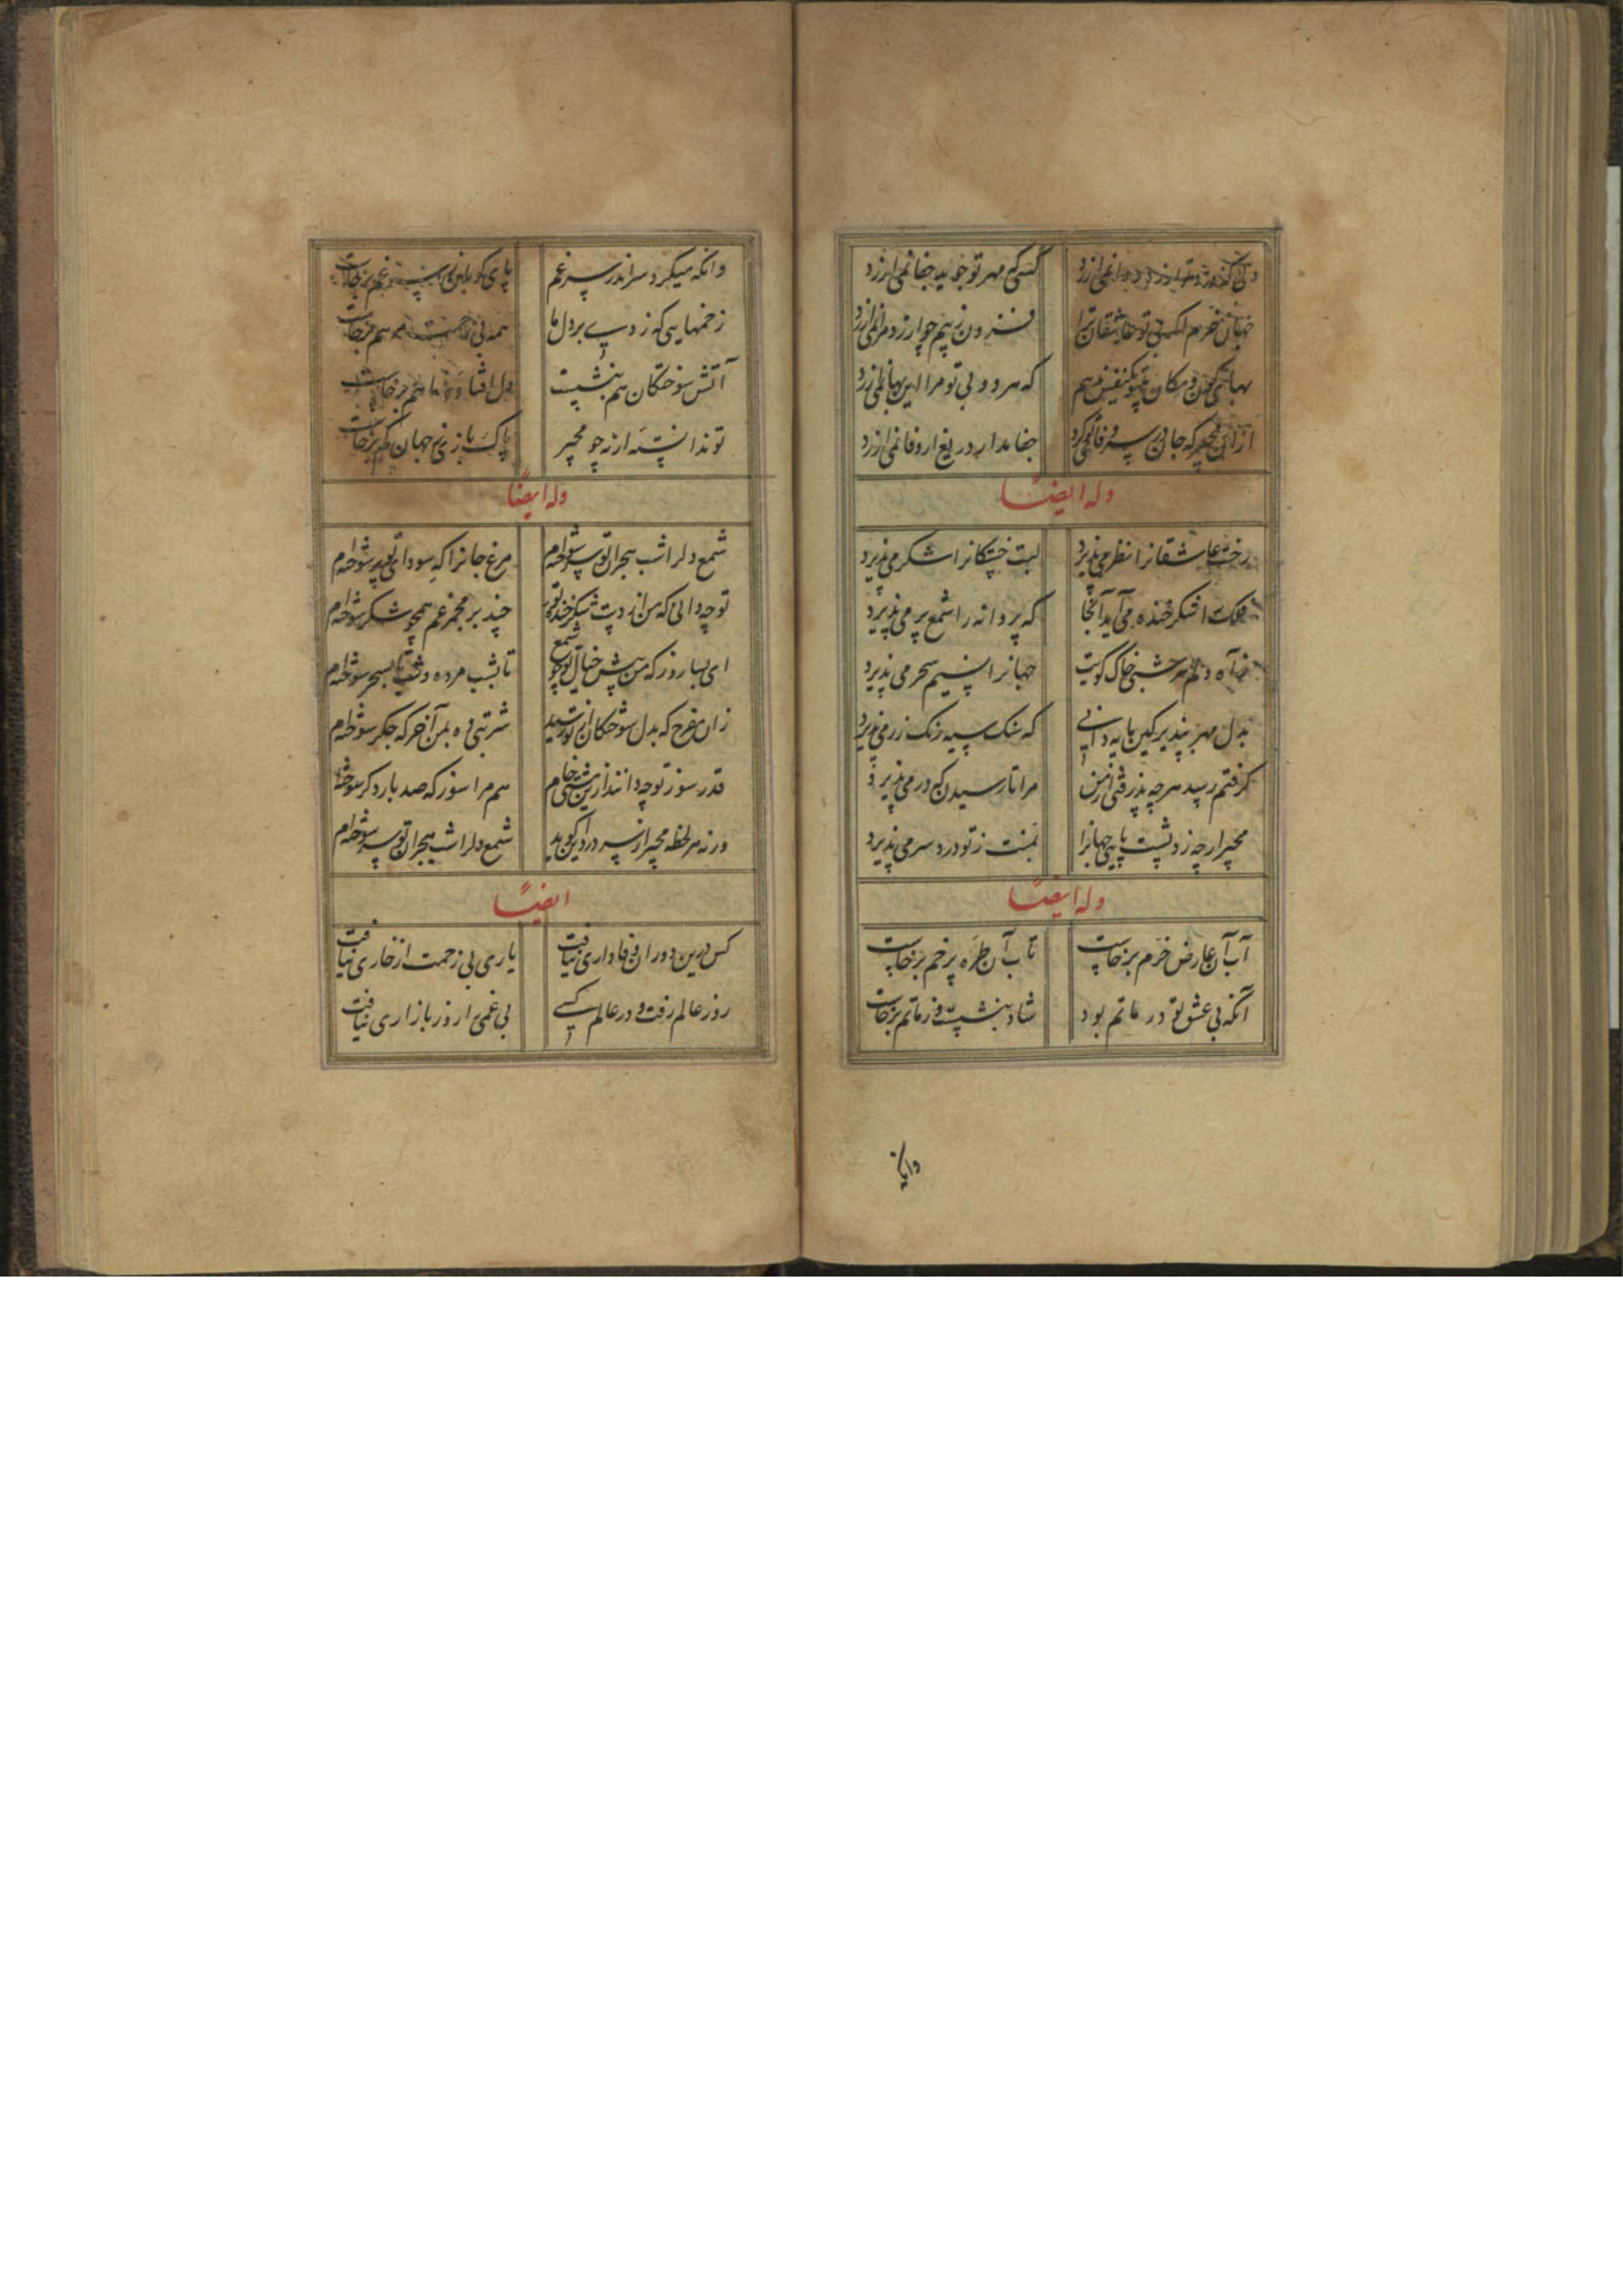 کسی که مهر تو جوید جفا نمی ارزد
جهان خرم اگر بی تو عاشقان ترا فزون ز نیم جو ارزد مرا نمی ارزد
بهای کون و مکان که هر دو بی تو مرا این بها نمی ارزد
از آن مجیر که جان در سر وفای تو کرد جفا مدار دریغ ار وفا نمی ارزد
وله ایضاً
رخت عاشقانرا نظر می پذیرد لبت خستگانرا شکر می پذیرد
فلک را شکر خنده می آید آنجا که پروانه را شمع پر می پذیرد
ز آه دلم هر شبی خاک کویت جهانرا نسیم سحر می پذیرد
بدل مهر بپذیر کین مایه دانی که سنک سیه رنک زر می پذیرد
کرفتم رسد هر چه پذرفتی از من مرا تا رسیدن که در می پذیرد
مجیر ار چه زد پشت پایی جهانرا بمنت ز تو درد سر می پذیرد
وله ایضاً
آب آن عارض خرم برخاست تاب آن طره پر خم برخاست
آنکه بی عشق تو در ماتم بود شاد بنشست و ز ماتم برخاست
وانکه
وانکه میکرد سر اندر سر غم پای کوبان ز سر غم برخاست
زخمهایی که زدی بر دل ما همه بی زحمت مرهم برخاست
آتش سوختگان هم بنشست دل افتاده ما هم برخاست
تو ندانسته ار نه چو مجیر پاک بازی ز جهان کم برخاست
وله ایضاً
شمع دلرا شب هجران تو سر سوخته ام مرغ جانرا که سودای تو پر سوخته ام
تو چه دانی که من از دست شکر خنده تو چند بر مجمر غم همچو شکر سوخته ام
ای بسا روز که من پیش خیال تو چو شمع تا بشب مرده و شب تا بسحر سوخته ام
زان مفرح که بدل سوختگان از تو رسید شربتی ده بمن آخر که جکر سوخته ام
قدر سوز تو چه دانند ازین مشتی خام هم مرا سوز که صد بار دکر سوخته ام
ورنه هر لحظه مجیر از سر درد این کوید شمع دلرا شب هجران تو سر سوخته ام
ایضاً
کس درین دوران وفاداری نیافت یاری بی زحمت از خاری نیافت
روز عالم رفت و در عالم کسی بی غمی را روز بازاری نیافت